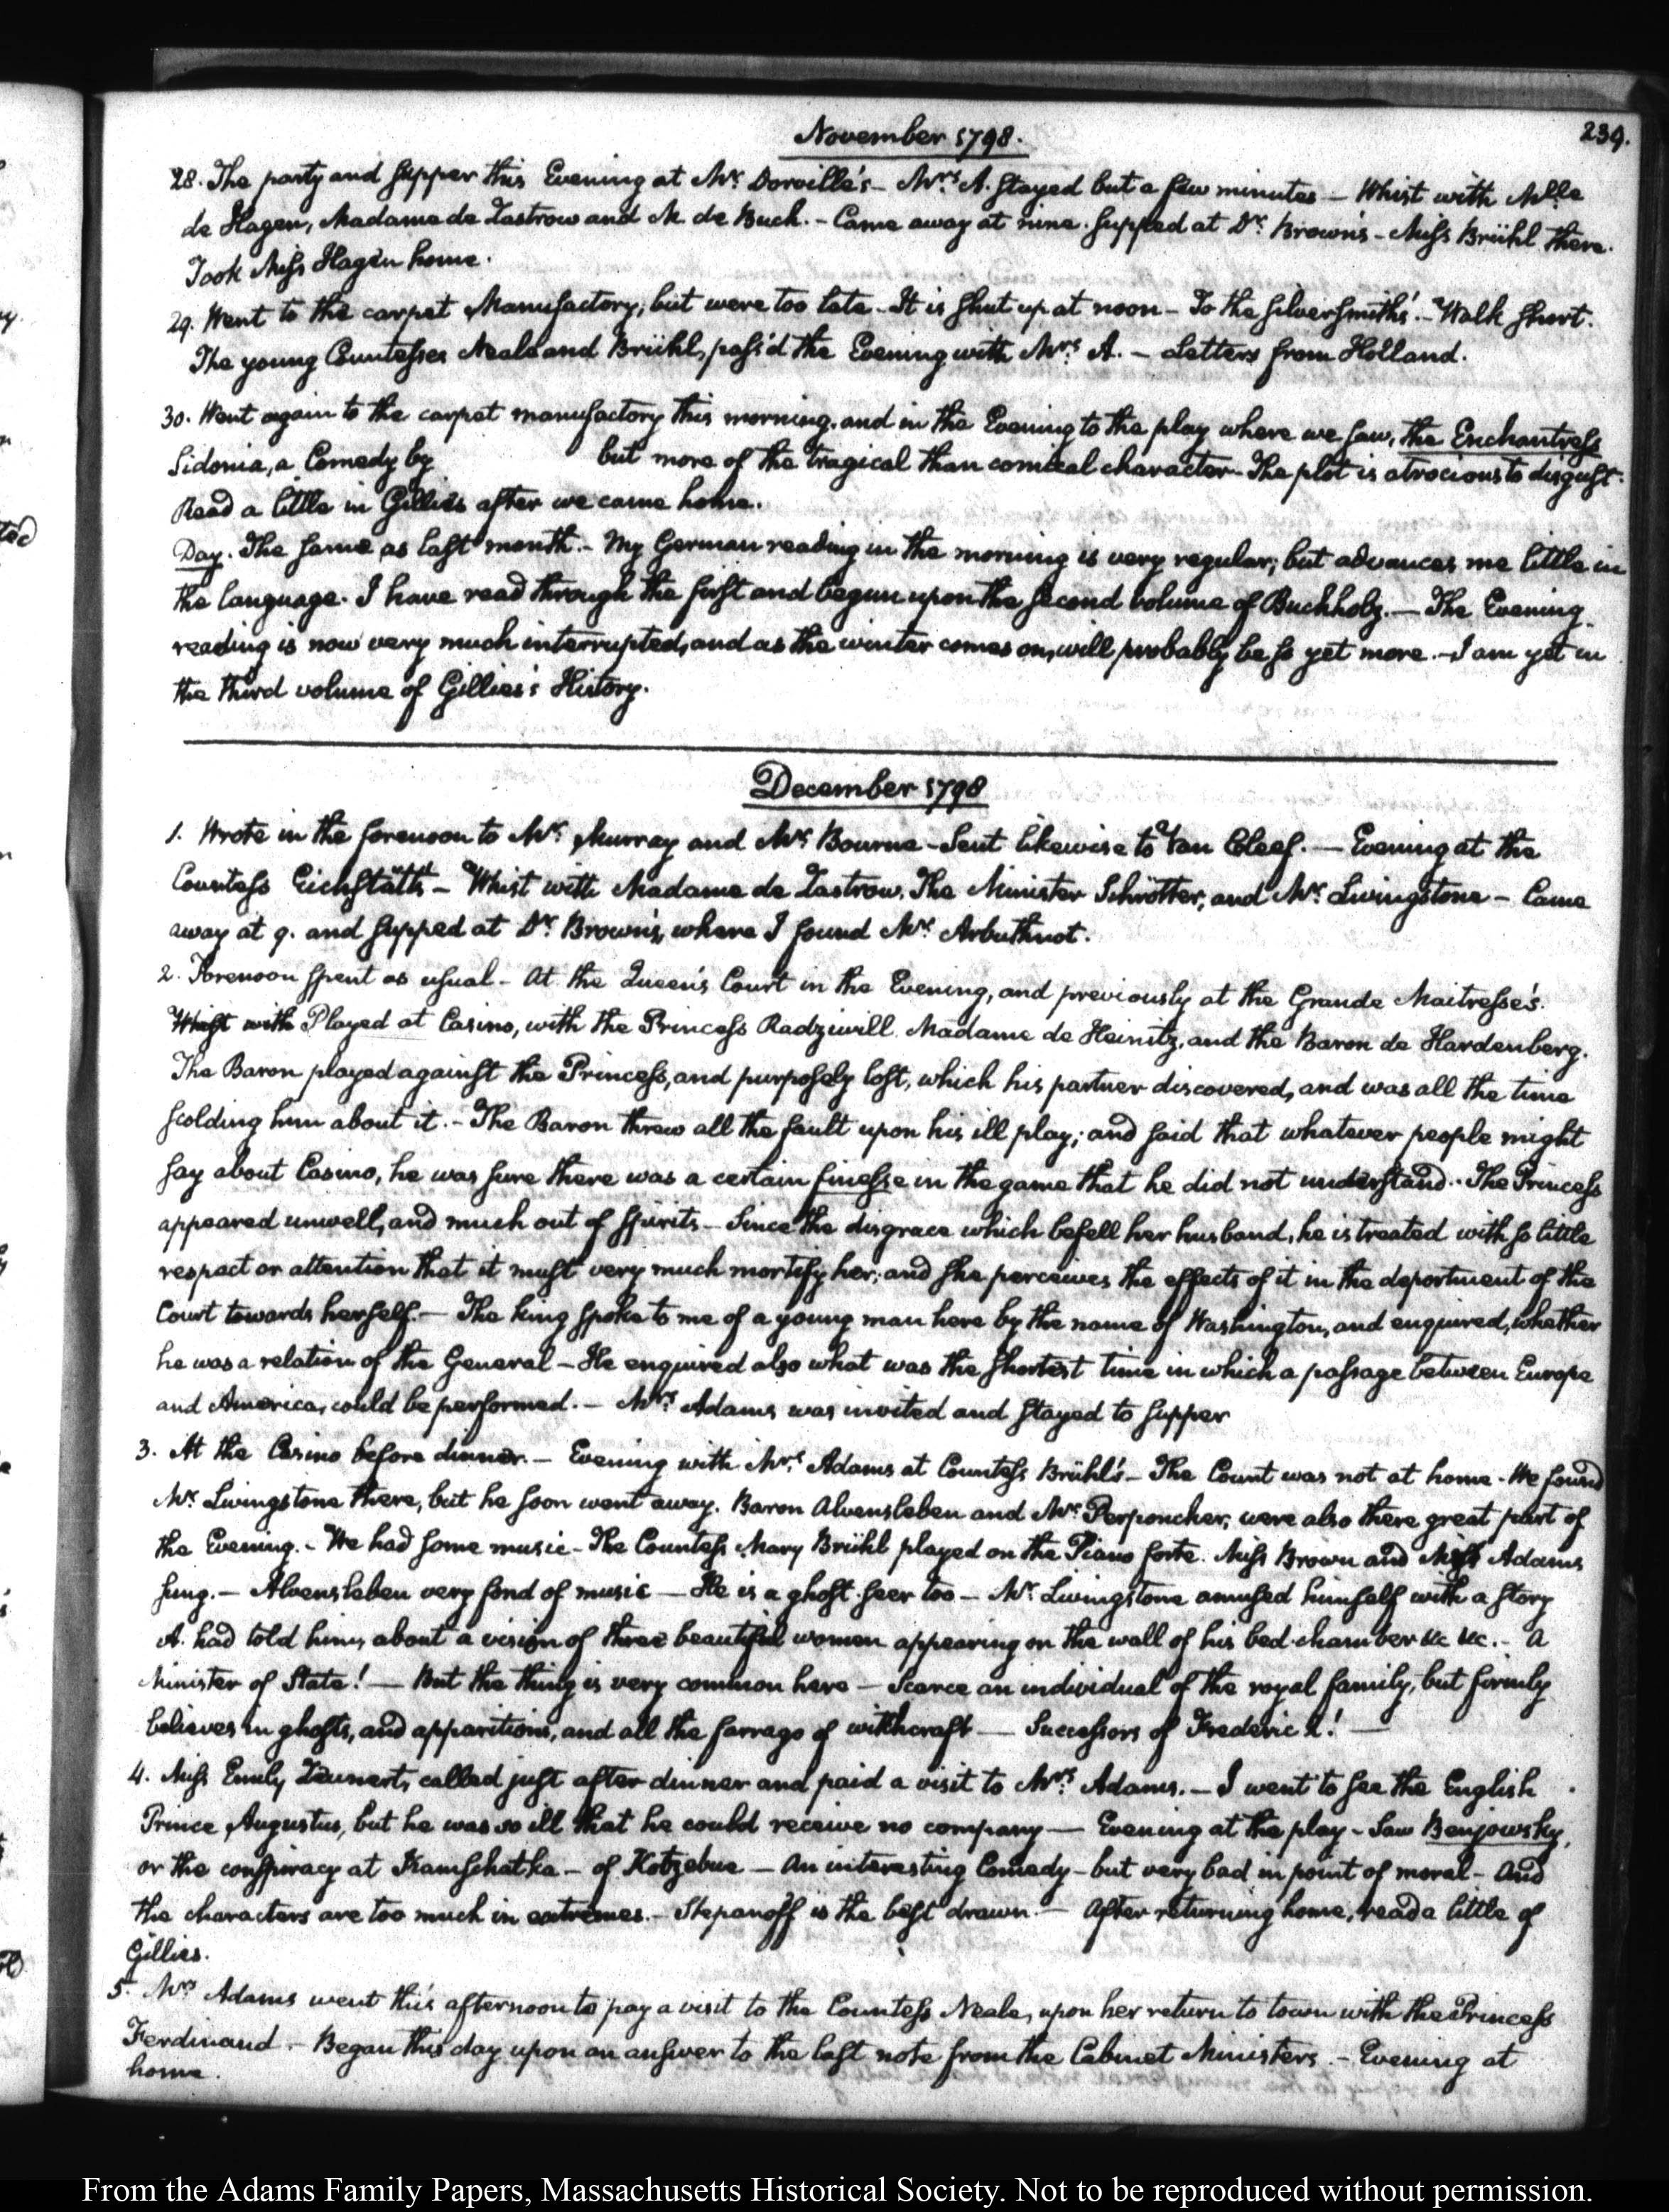 239.
November 1798.
28. The party and supper this Evening at Mr. Dorville's — Mrs. A. stayed but a few minutes — Whist with Mlle
de Hagen, Madame de Zastrow and M. de Buch. — Came away at nine. Supped at Dr. Brown's — Miss Brühl there.
Took Miss Hagen home.
29. Went to the carpet Manufactory, but were too late — It is shut up at noon — To the silversmiths'. — Walk short.
The young Countesses Neale and Brühl, pass'd the Evening with Mrs. A. — Letters from Holland.
30. Went again to the carpet manufactory this morning, and in the Evening to the play where we saw, the Enchantress
Sidonia, a Comedy by but more of the tragical than comical character — The plot is atrocious to disgust.
Read a little in Gillies after we came home.
Day. The same as last month. — My German reading in the morning is very regular; but advances me little in
the language. I have read through the first and begun upon the second volume of Buchholz. — The Evening
reading is now very much interrupted, and as the winter comes on, will probably be so yet more. — I am yet in
the third volume of Gillies's History.
December 1798
1. Wrote in the forenoon to Mr. Murray and Mr. Bourne — Sent likewise to Van Cleef. — Evening at the
Countess Eichstätt's — Whist with Madame de Zastrow, The Minister Schrötter, and Mr. Livingstone — Came
away at 9. and supped at Dr. Brown's, where I found Mr. Arbuthnot.
2. Forenoon spent as usual — At the Queen's Court in the Evening, and previously at the Grande Maitresse's.
Whist with Played at Casino, with the Princess Radziwill Madame de Heinitz, and the Baron de Hardenberg.
The Baron played against the Princess, and purposely lost, which his partner discovered, and was all the time
scolding him about it. — The Baron threw all the fault upon his ill play; and said that whatever people might
say about Casino, he was sure there was a certain finesse in the game that he did not understand. — The Princess
appeared unwell, and much out of spirits — Since the disgrace which befell her husband, he is treated with so little
respect or attention that it must very much mortify her; and she perceives the effects of it in the deportment of the
Court towards herself. — The king spoke to me of a young man here by the name of Washington, and enquired, whether
he was a relation of the General — He enquired also what was the shortest time in which a passage between Europe
and America, could be performed. — Mrs. Adams was invited and stayed to supper
3. At the Casino before dinner. — Evening with Mrs. Adams at Countess Brühl's — The Count was not at home. We found
Mr. Livingstone there, but he soon went away. Baron Alvensleben and Mr. Perponcher, were also there great part of
the Evening. — We had some music — The Countess Mary Brühl played on the Piano forte. Miss Brown and Mrs Adams
sung. — Alvensleben very fond of music — He is a ghost-seer too — Mr. Livingstone amused himself with a story
A. had told him, about a vision of three beautiful women appearing on the wall of his bed-chamber &c &c. — A
Minister of State! — But the thing is very common here — Scarce an individual of the royal family, but firmly
believes in ghosts, and apparitions, and all the farrago of witchcraft — Successors of Frederic 2! —
4. Miss Emily called just after dinner and paid a visit to Mrs. Adams. — I went to see the English
Prince Augustus, but he was so ill that he could receive no company — Evening at the play — Saw Benjowsky,
or the conspiracy at Kamschatka — of Kotzebue — An interesting Comedy — but very bad in point of moral — And
the characters are too much in extremes. — Stepanoff is the best drawn. — After returning home, read a little of
Gillies.
5. Mrs Adams went this afternoon to pay a visit to the Countess Neale, upon her return to town with the Princess
Ferdinand. — Began this day upon an answer to the last note from the Cabinet Ministers. — Evening at
home.
From the Adams Family Papers, Massachusetts Historical Society. Not to be reproduced without permission.